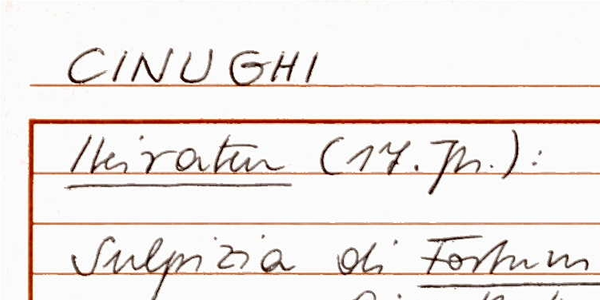 CINUGHI
Heiraten (17. Jh.):
Sulpizia di